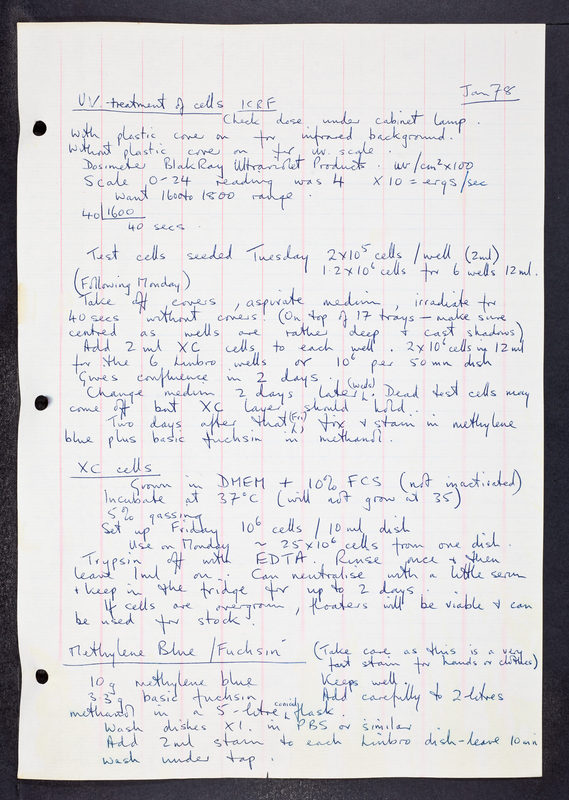 Jan 78
U.V. treatment of cells ICRF
Check dose under cabinet lamp.
With plastic cover on for infrared background.
Without plastic cover on for uv. scale.
Dosimeter BlakRay Ultraviolet Products. uv/cm² x100
Scale 0-24 reading was 4 x10 = ergs/sec
Want 1600 to 1800 range.
40 | 1600
40 secs.
Test cells seeded Tuesday 2x10⁵ cells / well (2ml)
1.2 x 10⁶ cells for 6 wells 12 ml.
(Following Monday)
Take off covers, aspirate medium, irradiate for
40 secs without covers (On top of 17 trays - make sure
centred as wells are rather deep & cast shadows)
Add 2 ml XC cells to each well. 2x10⁶ cells in 12 ml
for the 6 Linbro wells or 10⁶ per 50 mm dish
Gives confluence in 2 days.
Change medium 2 days later (Weds). Dead test cells may
come off but XC layer should hold.
Two days after that (Fri), fix & stain in methylene
blue plus basic fuchsin in methanol.
XC cells
Grown in DMEM + 10% FCS (not inactivated)
Incubate at 37°C (will not grow at 35)
5% gassing
Set up Friday 10⁶ cells / 10 ml dish
Use on Monday ~ 25x10⁶ cells from one dish.
Trypsin off with EDTA. Rinse once & then
leave 1ml on. Can neutralise with a little serum
& keep in the fridge for up to 2 days.
If cells are overgrown, floaters will be viable & can
be used for stock.
Methylene Blue / Fuchsin (Take care as this is a very
fast stain for hands or clothes)
10 g methylene blue Keeps well.
3.3 g basic fuchsin Add carefully to 2-litres
methanol in a 5-litre conical flask.
Wash dishes x1. in PBS or similar
Add 2ml stain to each Linbro dish - leave 10 min
Wash under tap.